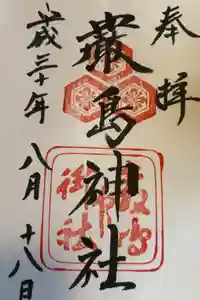 奉拝
嚴島神社
平成三十年八月十八日
嚴島
神社